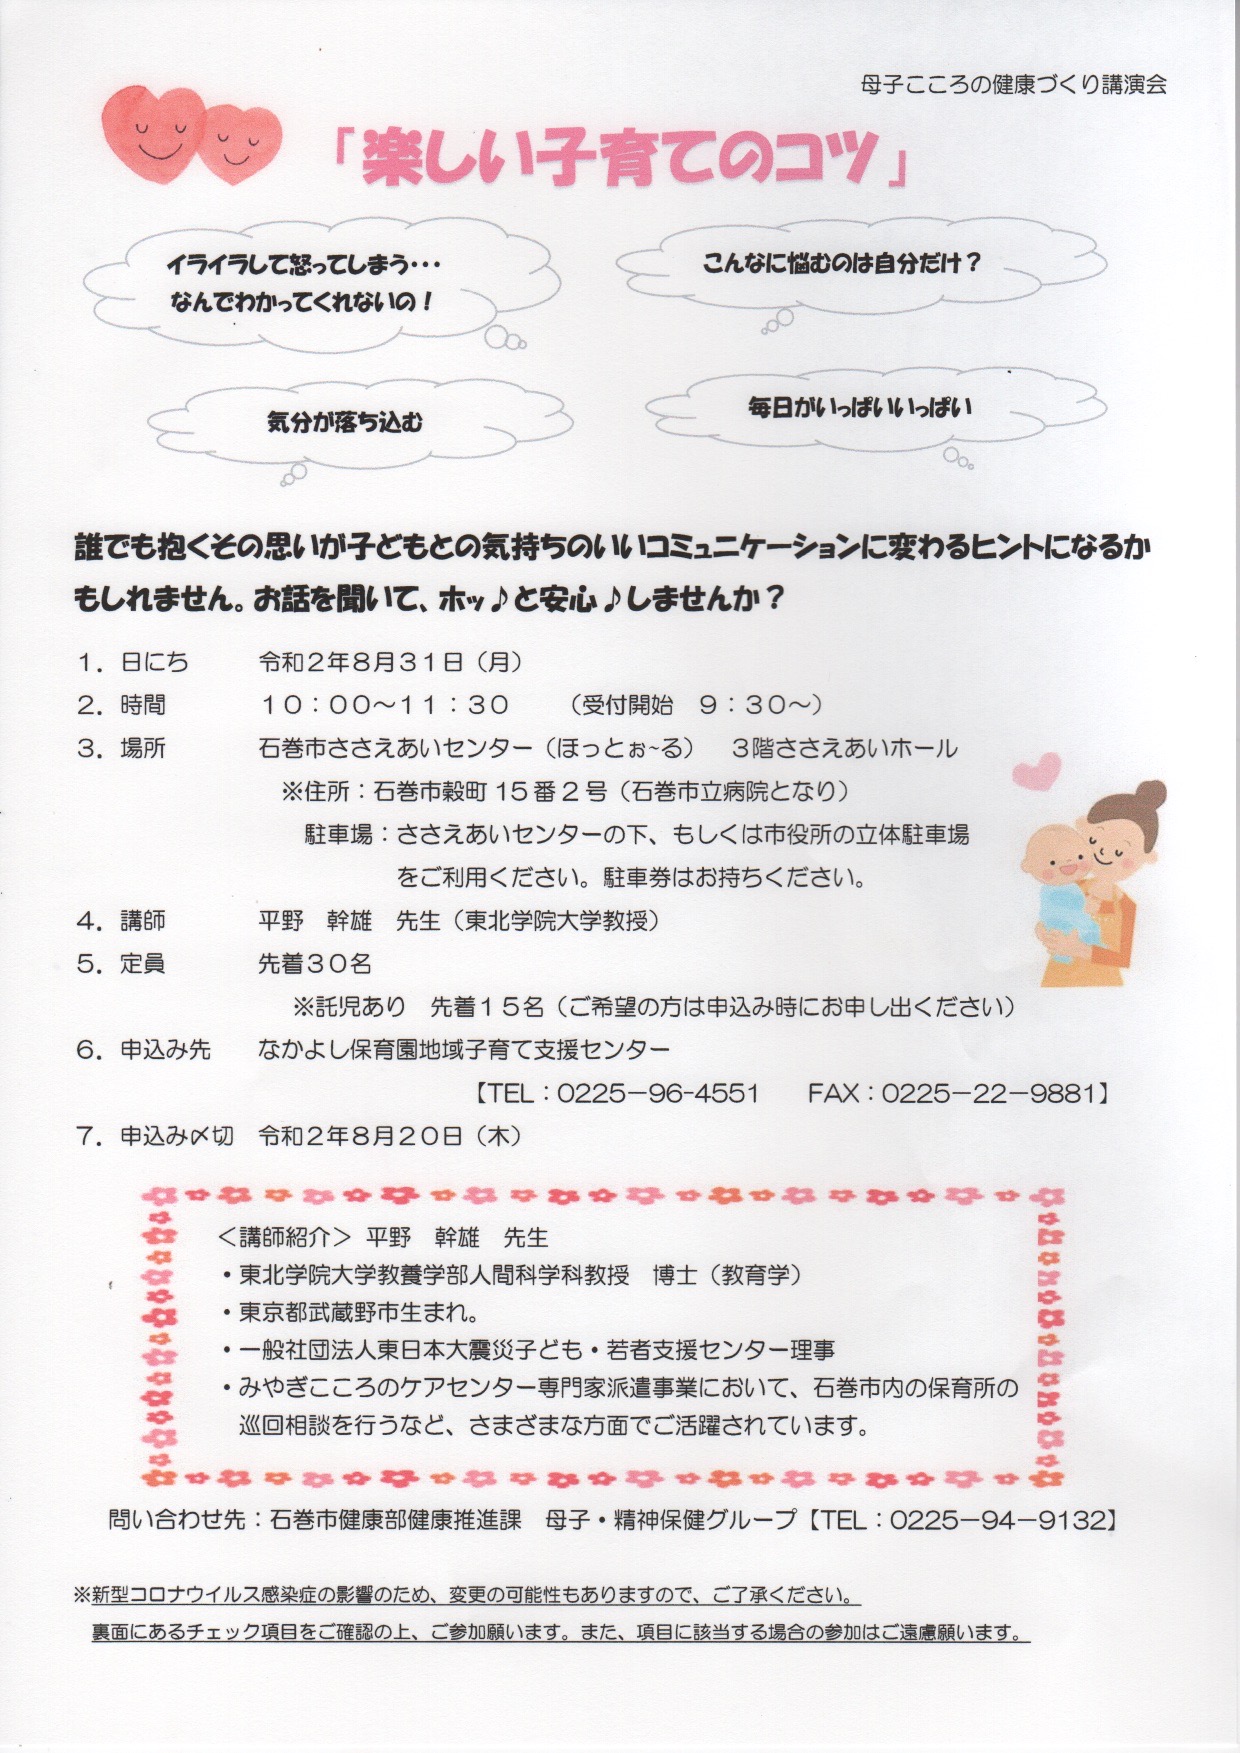 母子こころの健康づくり講演会
「楽しい子育てのコツ」
イライラして怒ってしまう･･･
なんでわかってくれないの！
こんなに悩むのは自分だけ？
気分が落ち込む
毎日がいっぱいいっぱい
誰でも抱くその思いが子どもとの気持ちのいいコミュニケーションに変わるヒントになるか
もしれません。お話を聞いて、ホッ♪と安心♪しませんか？
１．日にち　　　令和２年８月３１日（月）
２．時間　　　　１０：００～１１：３０　　（受付開始　９：３０～）
３．場所　　　　石巻市ささえあいセンター（ほっとぉ~る）　３階ささえあいホール
※住所：石巻市穀町 15 番 2 号（石巻市立病院となり）
駐車場：ささえあいセンターの下、もしくは市役所の立体駐車場
をご利用ください。駐車券はお持ちください。
４．講師　　　　平野　幹雄　先生（東北学院大学教授）
５．定員　　　　先着３０名
※託児あり　先着１５名（ご希望の方は申込み時にお申し出ください）
６．申込み先　　なかよし保育園地域子育て支援センター
【TEL：0225－96-4551　　FAX：0225－22－9881】
７．申込み〆切　令和２年８月２０日（木）
＜講師紹介＞ 平野　幹雄　先生
・東北学院大学教養学部人間科学科教授　博士（教育学）
・東京都武蔵野市生まれ。
・一般社団法人東日本大震災子ども・若者支援センター理事
・みやぎこころのケアセンター専門家派遣事業において、石巻市内の保育所の
巡回相談を行うなど、さまざまな方面でご活躍されています。
問い合わせ先：石巻市健康部健康推進課　母子・精神保健グループ【TEL：0225－94－9132】
※新型コロナウイルス感染症の影響のため、変更の可能性もありますので、ご了承ください。
裏面にあるチェック項目をご確認の上、ご参加願います。また、項目に該当する場合の参加はご遠慮願います。